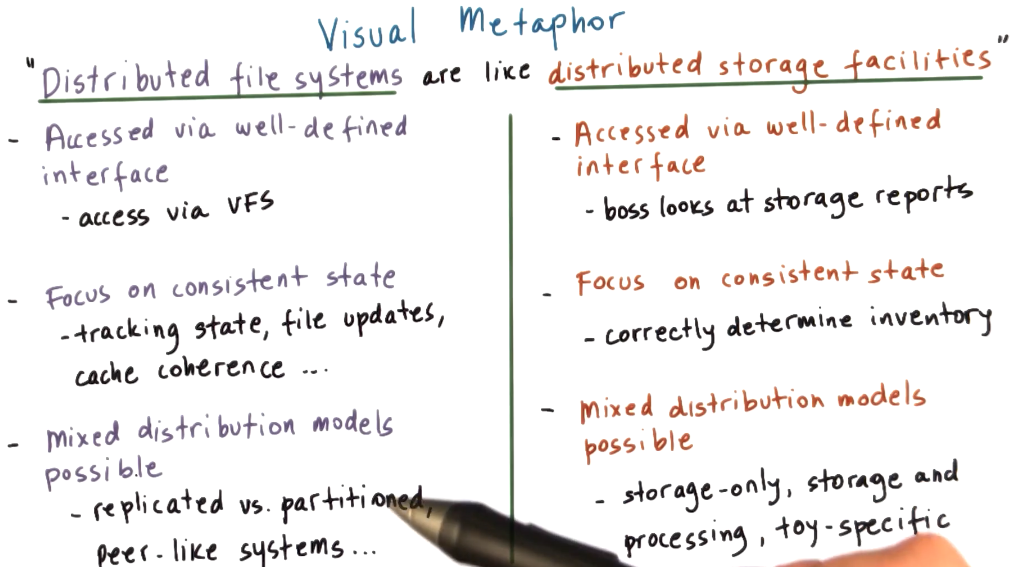 Visual Metaphor
"Distributed file systems are like distributed storage facilities"
- Accessed via well-defined
interface
- access via VFS
- Focus on consistent state
- tracking state, file updates,
cache coherence ...
- Mixed distribution models
possible
- replicated vs. partitioned,
peer-like systems...
- Accessed via well-defined
interface
- boss looks at storage reports
- Focus on consistent state
- correctly determine inventory
- Mixed distribution models
possible
- storage-only, storage and
processing, toy-specific